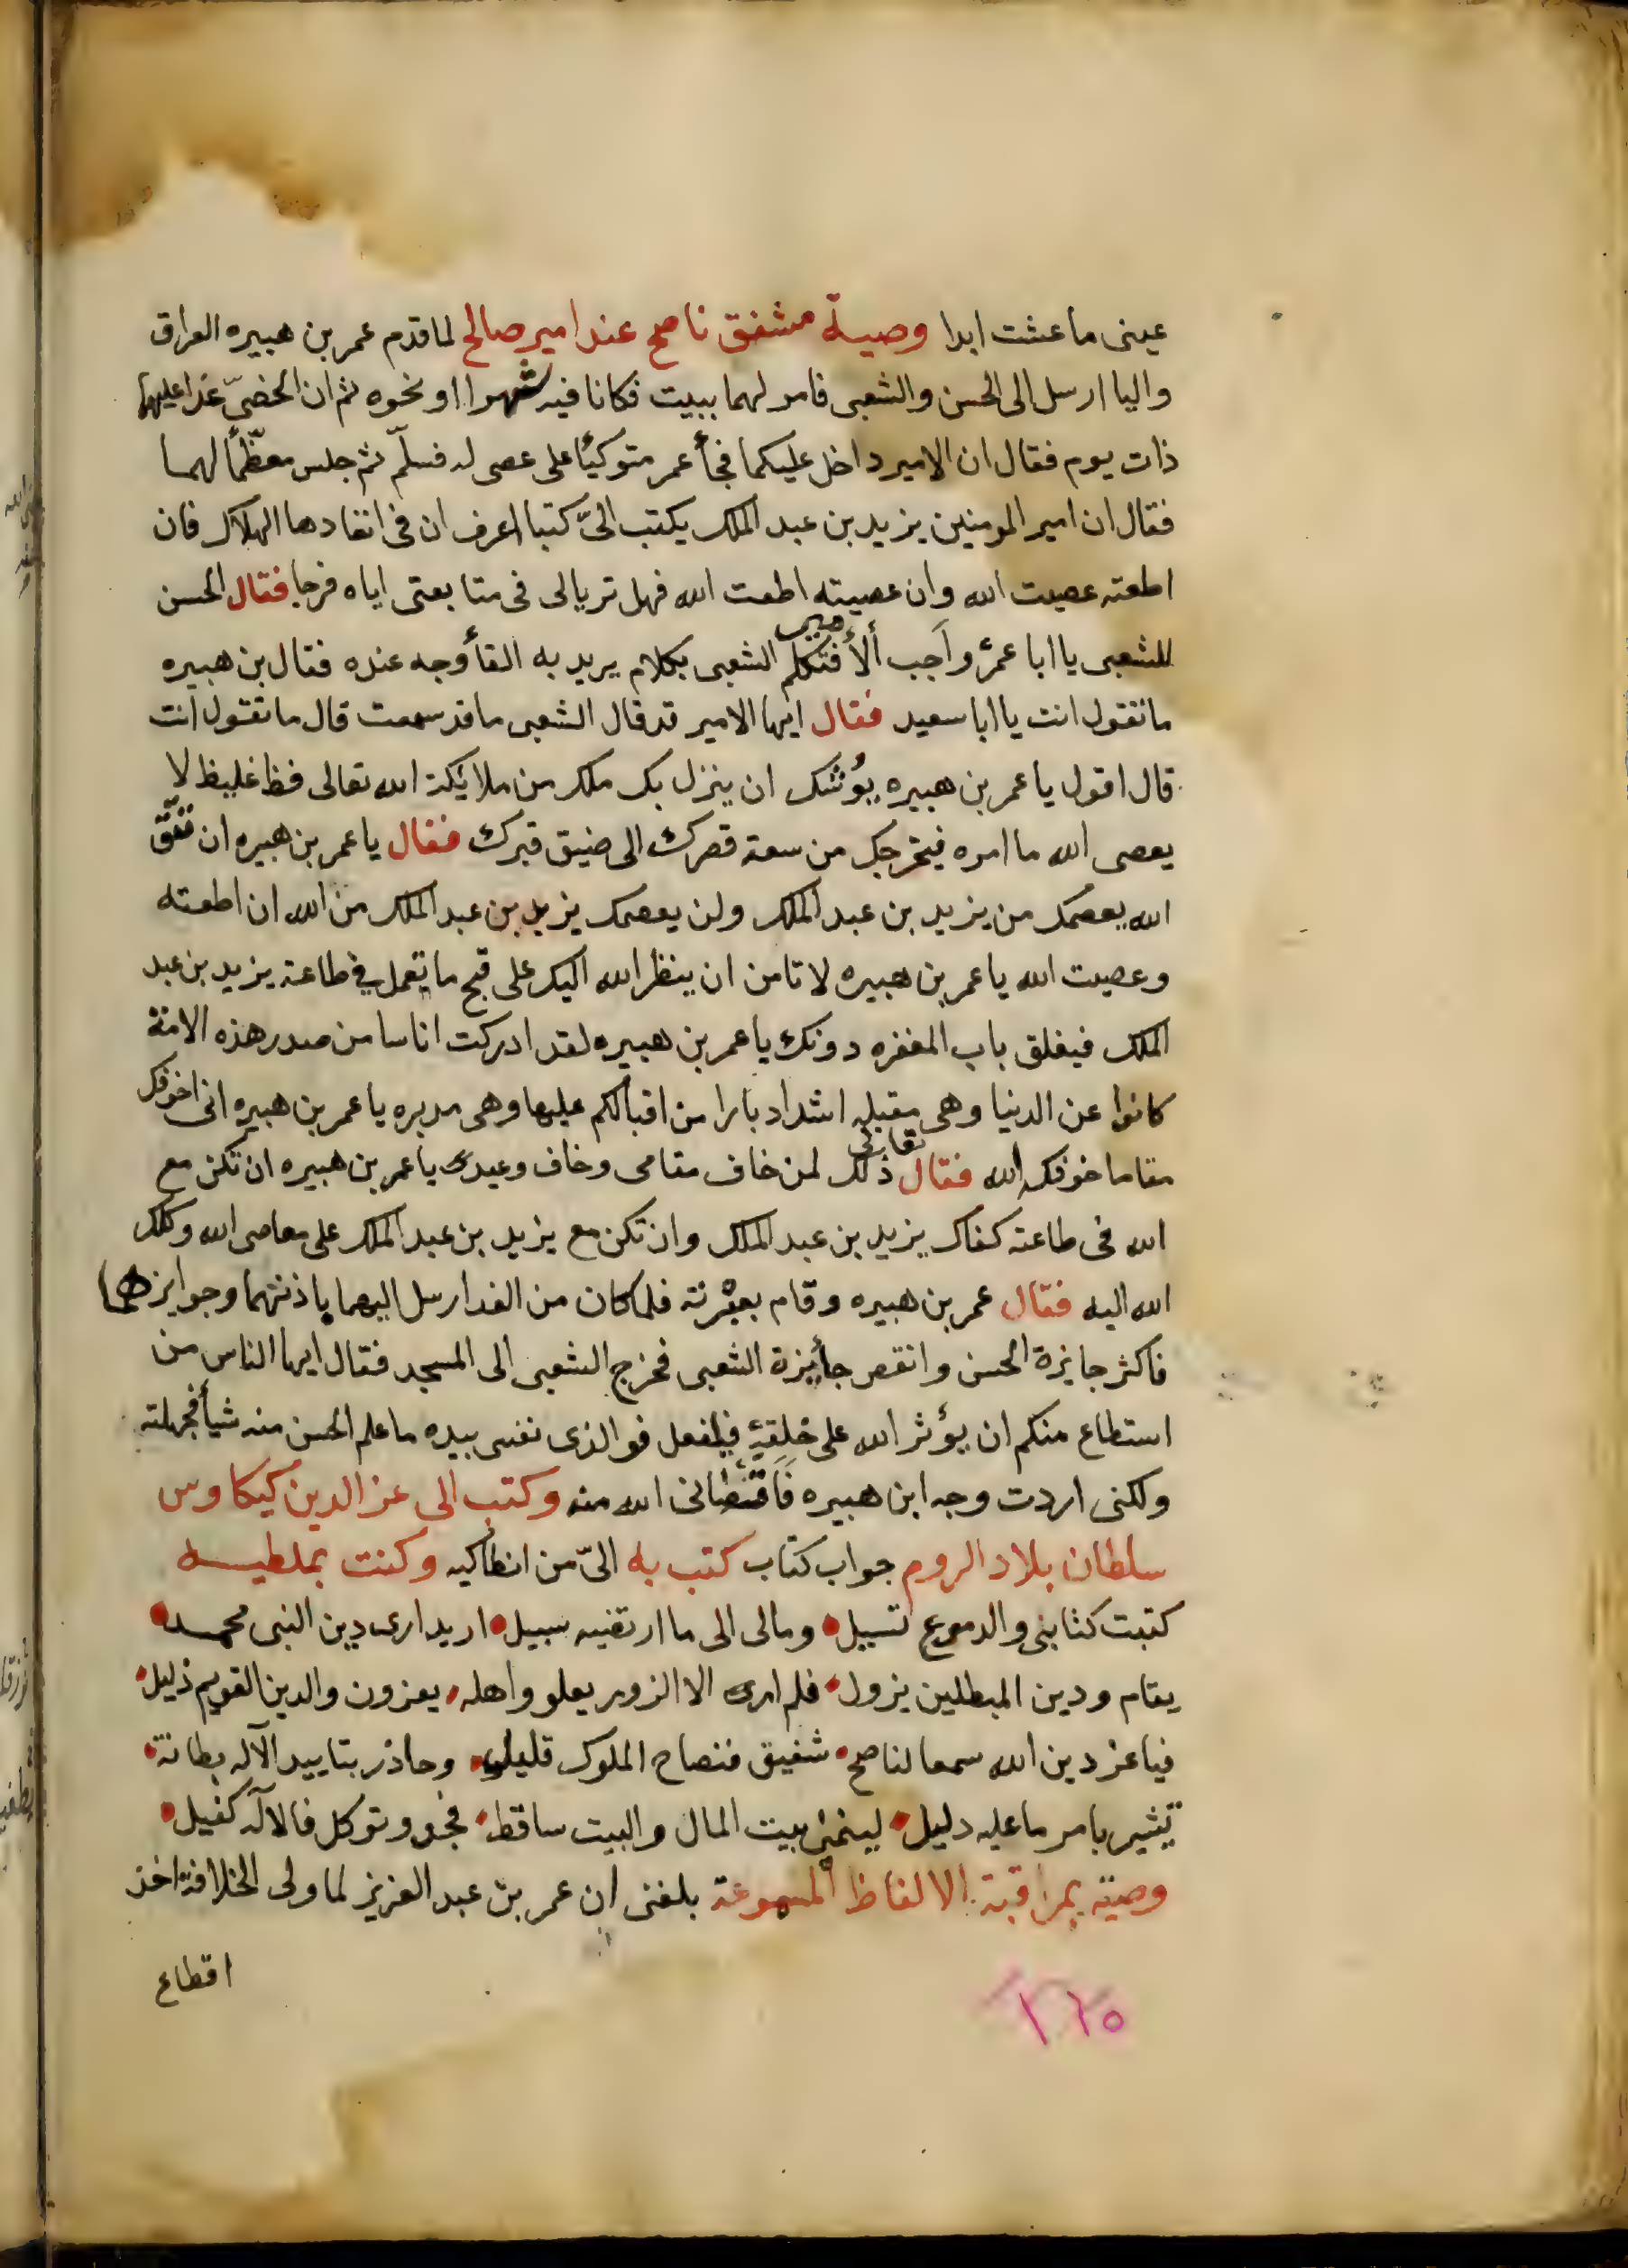 عينى ما عشت ابدا وصية مشفق ناصح عند امير صالح لما قدم عمر بن هبيره العراق
واليا ارسل الى الحسن والشعبى فامر لهما ببيت فكانا فيه شهرا او نحوه ثم ان الخصىّ غدا عليهما
ذات يوم فقال ان الامير داخل عليكما فجأ عمر متوكيًا على عصى له فسلّم ثم جلس معظّمًا لهما
فقال ان امير المومنين يزيد بن عبد الملك يكتب الىّ كتبا اعرف ان فى انفاذها الهلاك فان
اطعته عصيت الله وان عصيته اطعت الله فهل تريا لى فى متابعتى اياه فرجا فقال الحسن
للشعبى يا ابا عمرو اَجب ألأمير فتكلم الشعبى بكلام يريد به القأ وجه عنده فقال بن هبيره
ما تقول انت يا ابا سعيد فقال ايها الامير قد قال الشعبى ما قد سمعت قال ما تقول انت
قال اقول يا عمر بن هبيره يوُشك ان ينزل بك ملك من ملايكة الله تعالى فظ غليظ لا
يعصى الله ما امره فيخرجك من سعة قصرك الى ضيق قبرك فقال يا عمر بن هبيره ان تتقّ
الله يعصمك من يزيد بن عبد الملك ولن يعصمك يزيد بن عبد الملك من الله ان اطعته
وعصيت الله يا عمر بن هبيره لا تامن ان ينظر الله اليك على قبح ما تعمل في طاعة يزيد بن عبد
الملك فيغلق باب المغفره دونك يا عمر بن هبيره لقد ادركت اناسا من صدر هذه الامة
كانوا عن الدنيا وهى مقبله اشد ادبارا من اقبالكم عليها وهى مدبره يا عمر بن هبيره انى اخوفك
مقاما خوفكه الله فقال تعالى ذلك لمن خاف مقامى وخاف وعيدى يا عمر بن هبيره ان تكن مع
الله فى طاعته كفاك يزيد بن عبد الملك وان تكن مع يزيد بن عبد الملك على معاصى الله وكلك
الله اليه فقال عمر بن هبيره وقام بعبْرته فلما كان من الغد ارسل اليهما باذنهما وجوايزهما
فاكثر جايزة الحسن وانقص جأيزة الشعبى فخرج الشعبى الى المسجد فقال ايها الناس من
استطاع منكم ان يؤثر الله على خلقهِ فليفعل فو الذى نفسى بيده ما علم الحسن منه شيأ فجهلته
ولكنى اردت وجه ابن هبيره فَاقصانى الله منه وكتب الى عز الدين كيكاوس
سلطان بلاد الروم جواب كتاب كتب به الىّ من انطاكيه وكنت بملطيه
كتبت كتابى والدموع تسيل وما لى الى ما ارتضيه سبيل اريد ارى دين النبى محمد
يقام ودين المبطلين يزول فلم ارى الا الزور يعلو واهله يعزون والدين القويم ذليل
فيا عز دين الله سمعا لناصح شفيق فنصاح الملوك قليل وحاذر بتاييد الآله بطانة
تشير بامر ما عليه دليل لينمى بيت المال والبيت ساقط فجد وتوكل فالآله كفيل
وصيّه بمراقبة الالفاظ المسموعة بلغنى ان عمر بن عبد العزيز لما ولى الخلافة اخذ
اقطاع
١٦٥